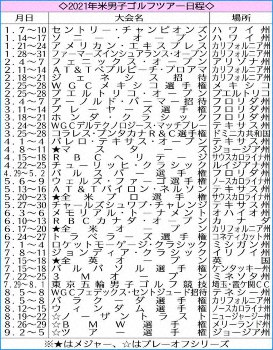 ◇2021年米男子ゴルフツアー日程◇
月日 大会名 場所
1. 7~10 セントリー・チャンピオンズ ハワイ州
1.14~17 ソニー・オープン ハワイ州
1.21~24 アメリカン・エキスプレス カリフォルニア州
1.28~31 ファーマーズ・インシュアランス・オープン カリフォルニア州
2. 4~7 フェニックス・オープン アリゾナ州
2.11~14 AT&Tペブルビーチ・プロアマ カリフォルニア州
2.18~21 ジェネシス招待 カリフォルニア州
2.25~28 WGCメキシコ選手権 メキシコ
2.25~28 プエルトリコ・オープン プエルトリコ
3. 4~7 アーノルド・パーマー招待 フロリダ州
3.11~14 プレーヤーズ選手権 フロリダ州
3.18~21 ホンダ・クラシック フロリダ州
3.24~28 WGCデルテクノロジーズ・マッチプレー テキサス州
3.25~28 コラレス・プンタカナR&C選手権 ドミニカ共和国
4. 1~4 バレロ・テキサス・オープン テキサス州
4. 8~11 ★マスターズ ジョージア州
4.15~18 RBCヘリテージ サウスカロライナ州
4.22~25 チューリッヒ・クラシック ルイジアナ州
4.29~5. 2 バルスパー選手権 フロリダ州
5. 6~9 ウェルズ・ファーゴ選手権 ノースカロライナ州
5.13~16 AT&Tバイロン・ネルソン テキサス州
5.20~23 ★全米プロ選手権 サウスカロライナ州
5.27~30 チャールズ・シュワブ・チャレンジ テキサス州
6. 3~6 メモリアル・トーナメント オハイオ州
6.10~13 RBCカナダ・オープン カナダ
6.17~20 ★全米オープン カリフォルニア州
6.24~27 トラベラーズ選手権 コネティカット州
7. 1~4 ロケットモーゲージ・クラシック ミシガン州
7. 8~11 ジョンディア・クラシック イリノイ州
7.15~18 ★全英オープン 英国
7.15~18 バルバソル選手権 ケンタッキー州
7.22~25 3Mオープン ミネソタ州
7.29~8. 1 東京五輪男子ゴルフ競技 埼玉・霞ケ関CC
8. 5~8 WGCフェデックス・セントジュード招待 テネシー州
8. 5~8 バラクーダ選手権 カリフォルニア州
8.12~15 ウィンダム選手権 ノースカロライナ州
8.19~22 ☆ノーザントラスト ニュージャージー州
8.26~29 ☆BMW選手権 メリーランド州
9. 2~5 ☆ツアー選手権 ジョージア州
※★はメジャー、☆はプレーオフシリーズ